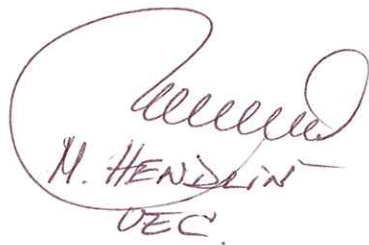 M. HENDLIN
UEC.